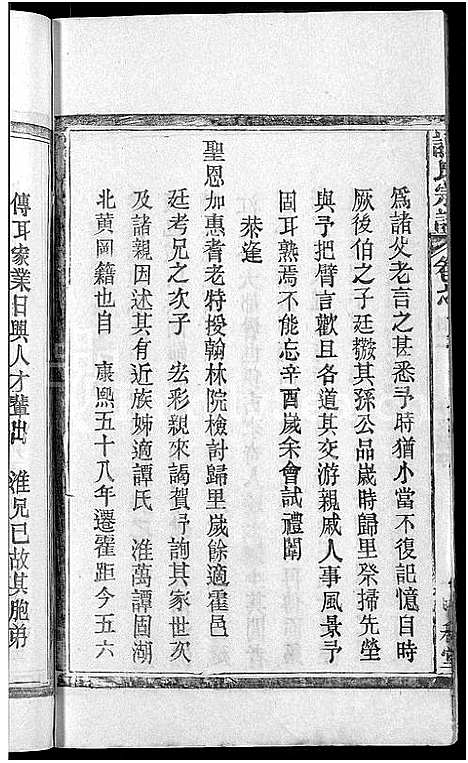 譚氏宗譜
為諸父老言之甚悉予時猶小當不復記憶自時
厥後伯之子廷撥其孫公品歲時歸里祭掃先塋
與予把臂言歡且各道其交游親戚人事風景予
固耳熟焉不能忘辛酉歲余會試禮闈
恭逢
聖恩加惠耆老特授翰林院檢討歸里歲餘適霍邑
廷考兄之次子 宏彩親來謁賀予詢其家世次
及諸親因述其有近族姊適譚氏 淮萬譚固湖
北黃岡籍也自 康熙五十八年遷霍距今五六
傳耳家業日興人才輩出 淮兄已故其胞弟